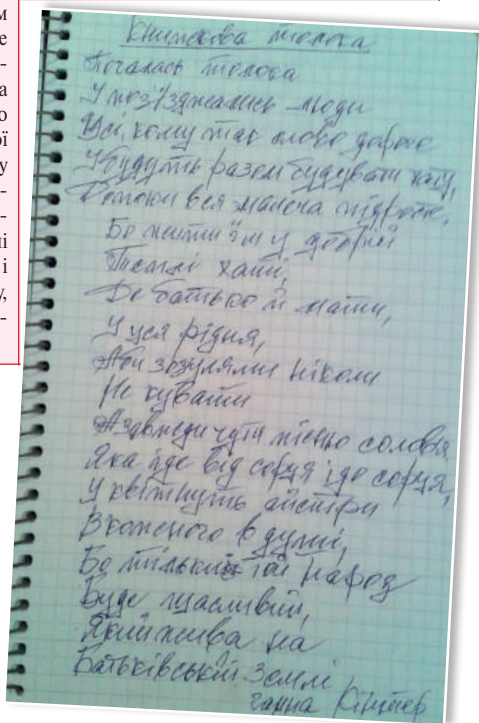 м
е
-
-
а
о
ї
у
-
-
і
і
у,
-
Книжкова толока
Почалась толока
І поз'їзджались люди
Усі, кому так слово дороге
І будуть разом будувати хату,
Допоки вся малеча підросте.
Бо жити їм у добрій
Теплі хаті,
Де батько й мати,
І уся рідня,
Аби зозулями ніколи
Не кували
А завжди чути пісню солов'я
Яка йде від серця і до серця,
І квітнуть айстри
В кожного в душі,
Бо тільки той народ
Буде щасливий,
Який жива на
Батьківській Землі
Ганна